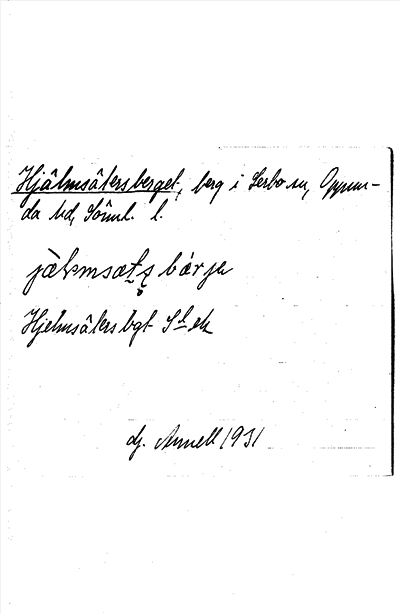 Hjälmsätersberget, berg i Lerbo sn, Oppun-
da hd, Söml. l.
jälmsætş bärje
Hjelmsäters bgt Stek
dj. Annell 1931